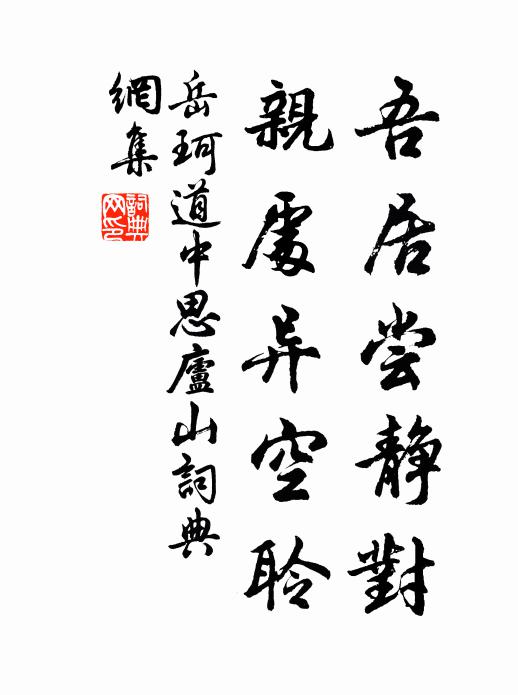 吾居尝静對
親處异空聆
岳珂道中思廬山詞典
網集
詞典网印